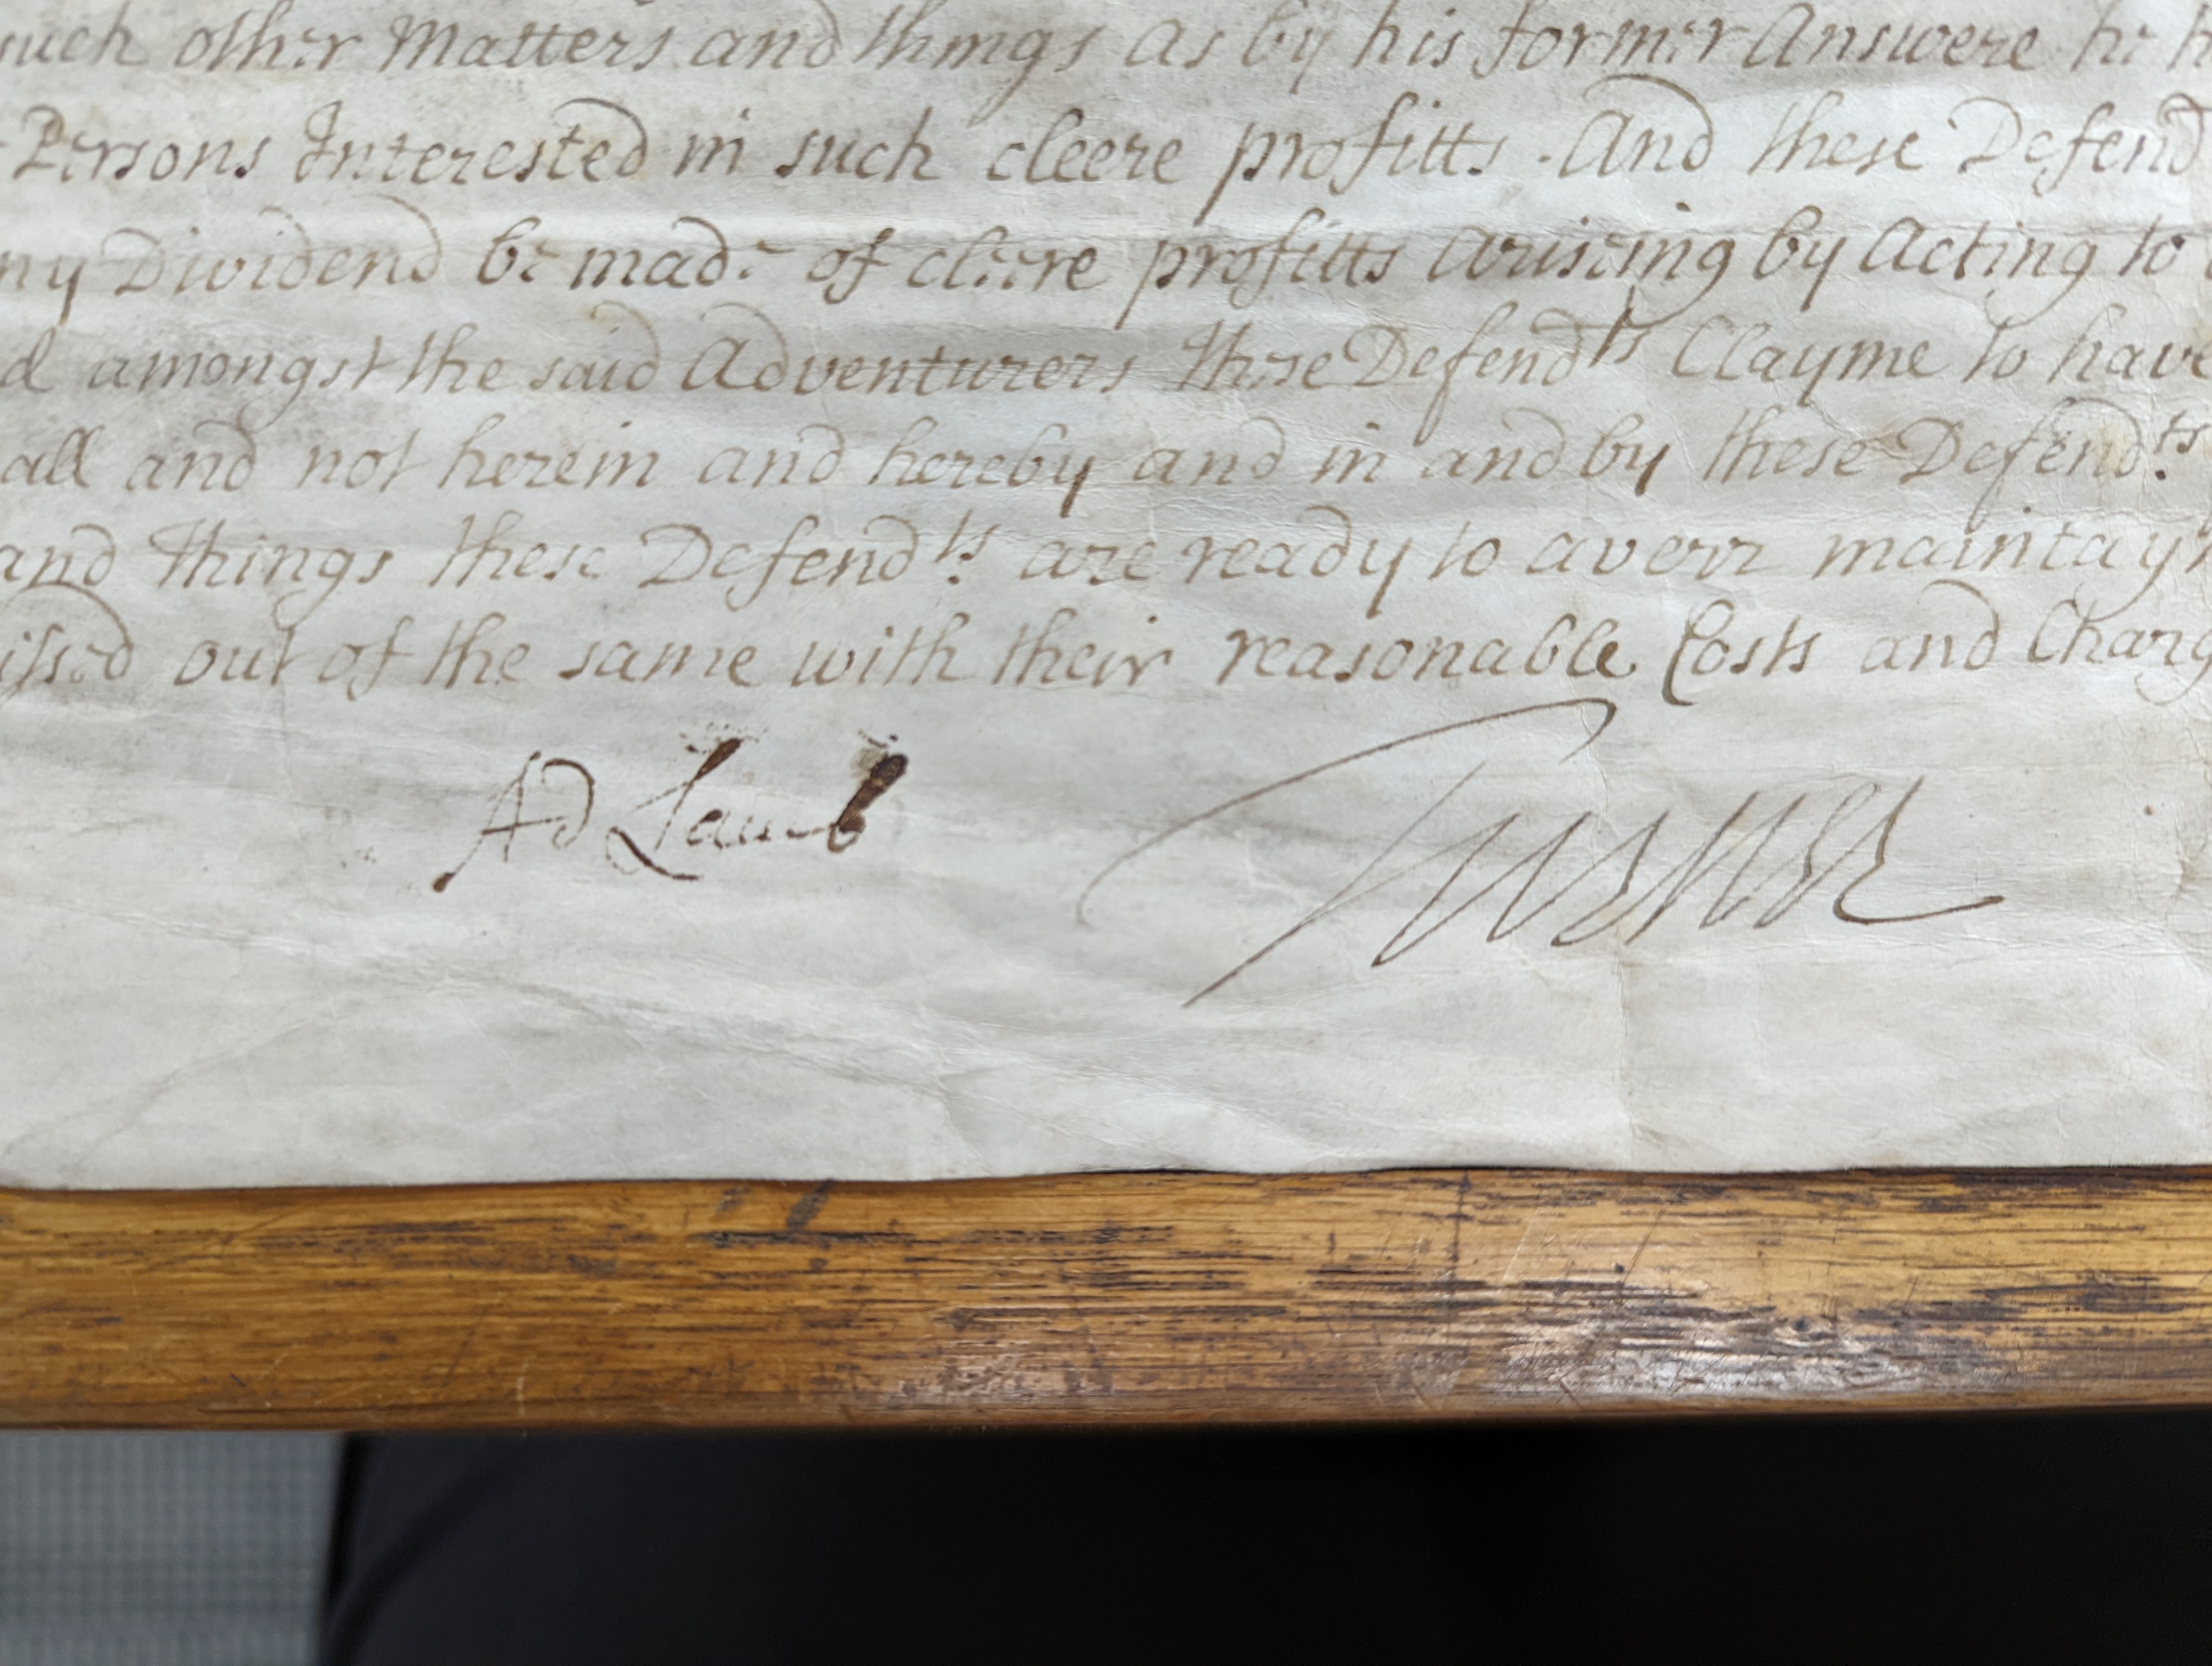 such other Matters and things as by his former Answere he
Persons Interested in such cleere profitts. And these Defend
ny Dividend be made of cleere profitts ariseing by Acting to
d amongst the said Adventurers these Defendts Clayme to have
all and not herein and hereby and in and by these Defendts
and things these Defendts are ready to averr maintay
issed out of the same with their reasonable Costs and Charg
Ad Lamb